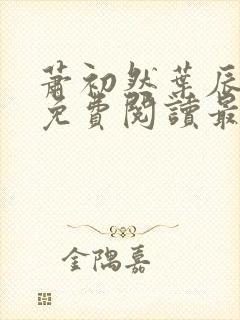 蕭初然葉辰
免費閱讀最
金隅嘉